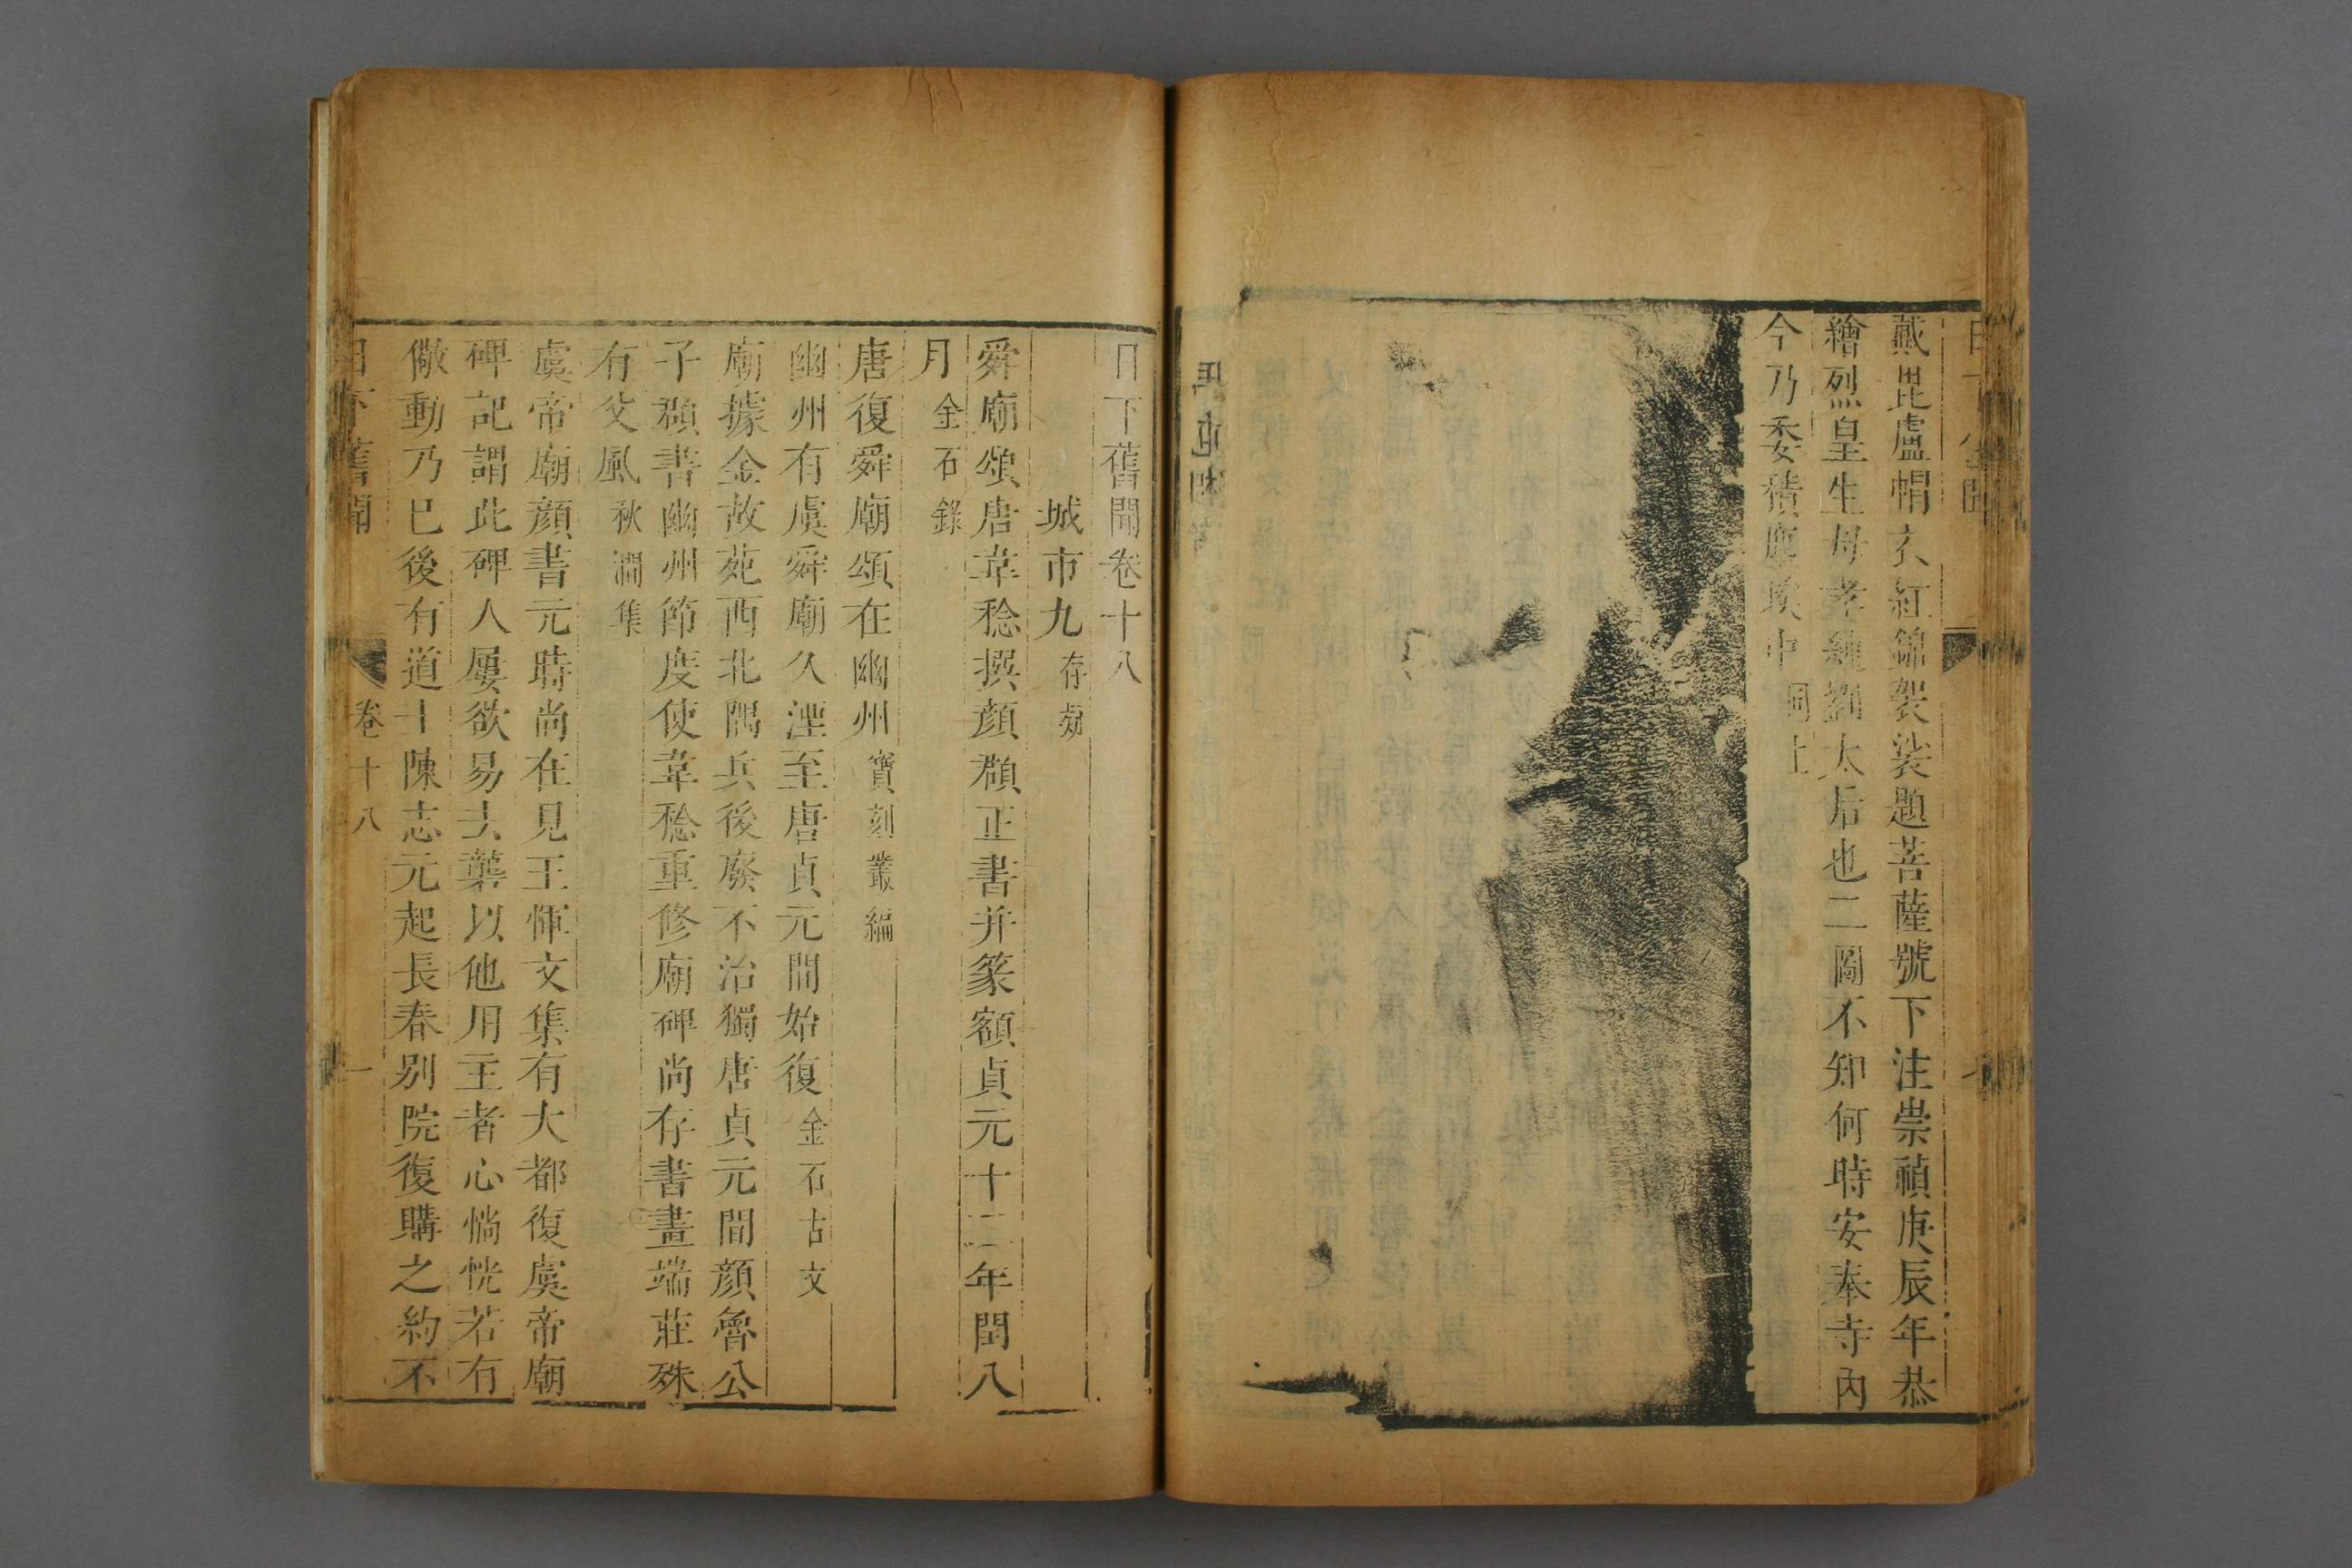 戴毘盧帽衣紅錦袈裟題菩薩號下注崇禎庚辰年恭
繪烈皇生母孝純劉太后也二圖不知何時安奉寺內
今乃委積塵埃中 同上
日下舊聞卷十八
城市九 存疑
舜廟頌唐韋稔撰顏頵正書并篆額貞元十二年閏八
月 金石錄
唐復舜廟頌在幽州 寶刻叢編
幽州有虞舜廟久湮至唐貞元間始復 金石古文
廟據金故苑西北隅兵後廢不治獨唐貞元間顏魯公
子頵書幽州節度使韋稔重修廟碑尚存書畫端莊殊
有父風 秋澗集
虞帝廟顏書元時尚在見王惲文集有大都復虞帝廟
碑記謂此碑人屢欲易去龔以他用主者心惝恍若有
儆動乃已後有道士陳志元起長春别院復購之約不
日下舊聞 卷十八 一